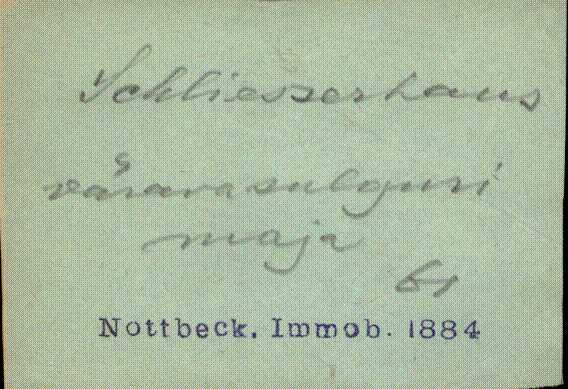 Schliesserhaus
väravasulguri
maja
61
Nottbeck. Immob. 1884